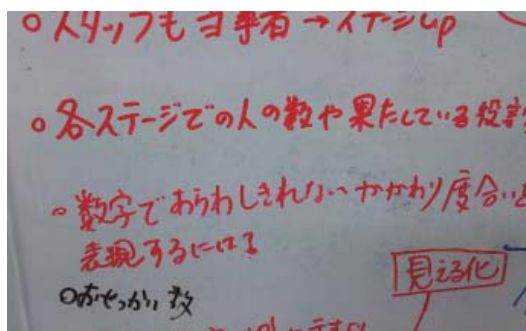 ○スタッフも当事者→ステージup
○各ステージでの人の数や果たしている役割
○数字であらわしきれないかかわり度合いを
表現するには?
○おせっかい数
見える化